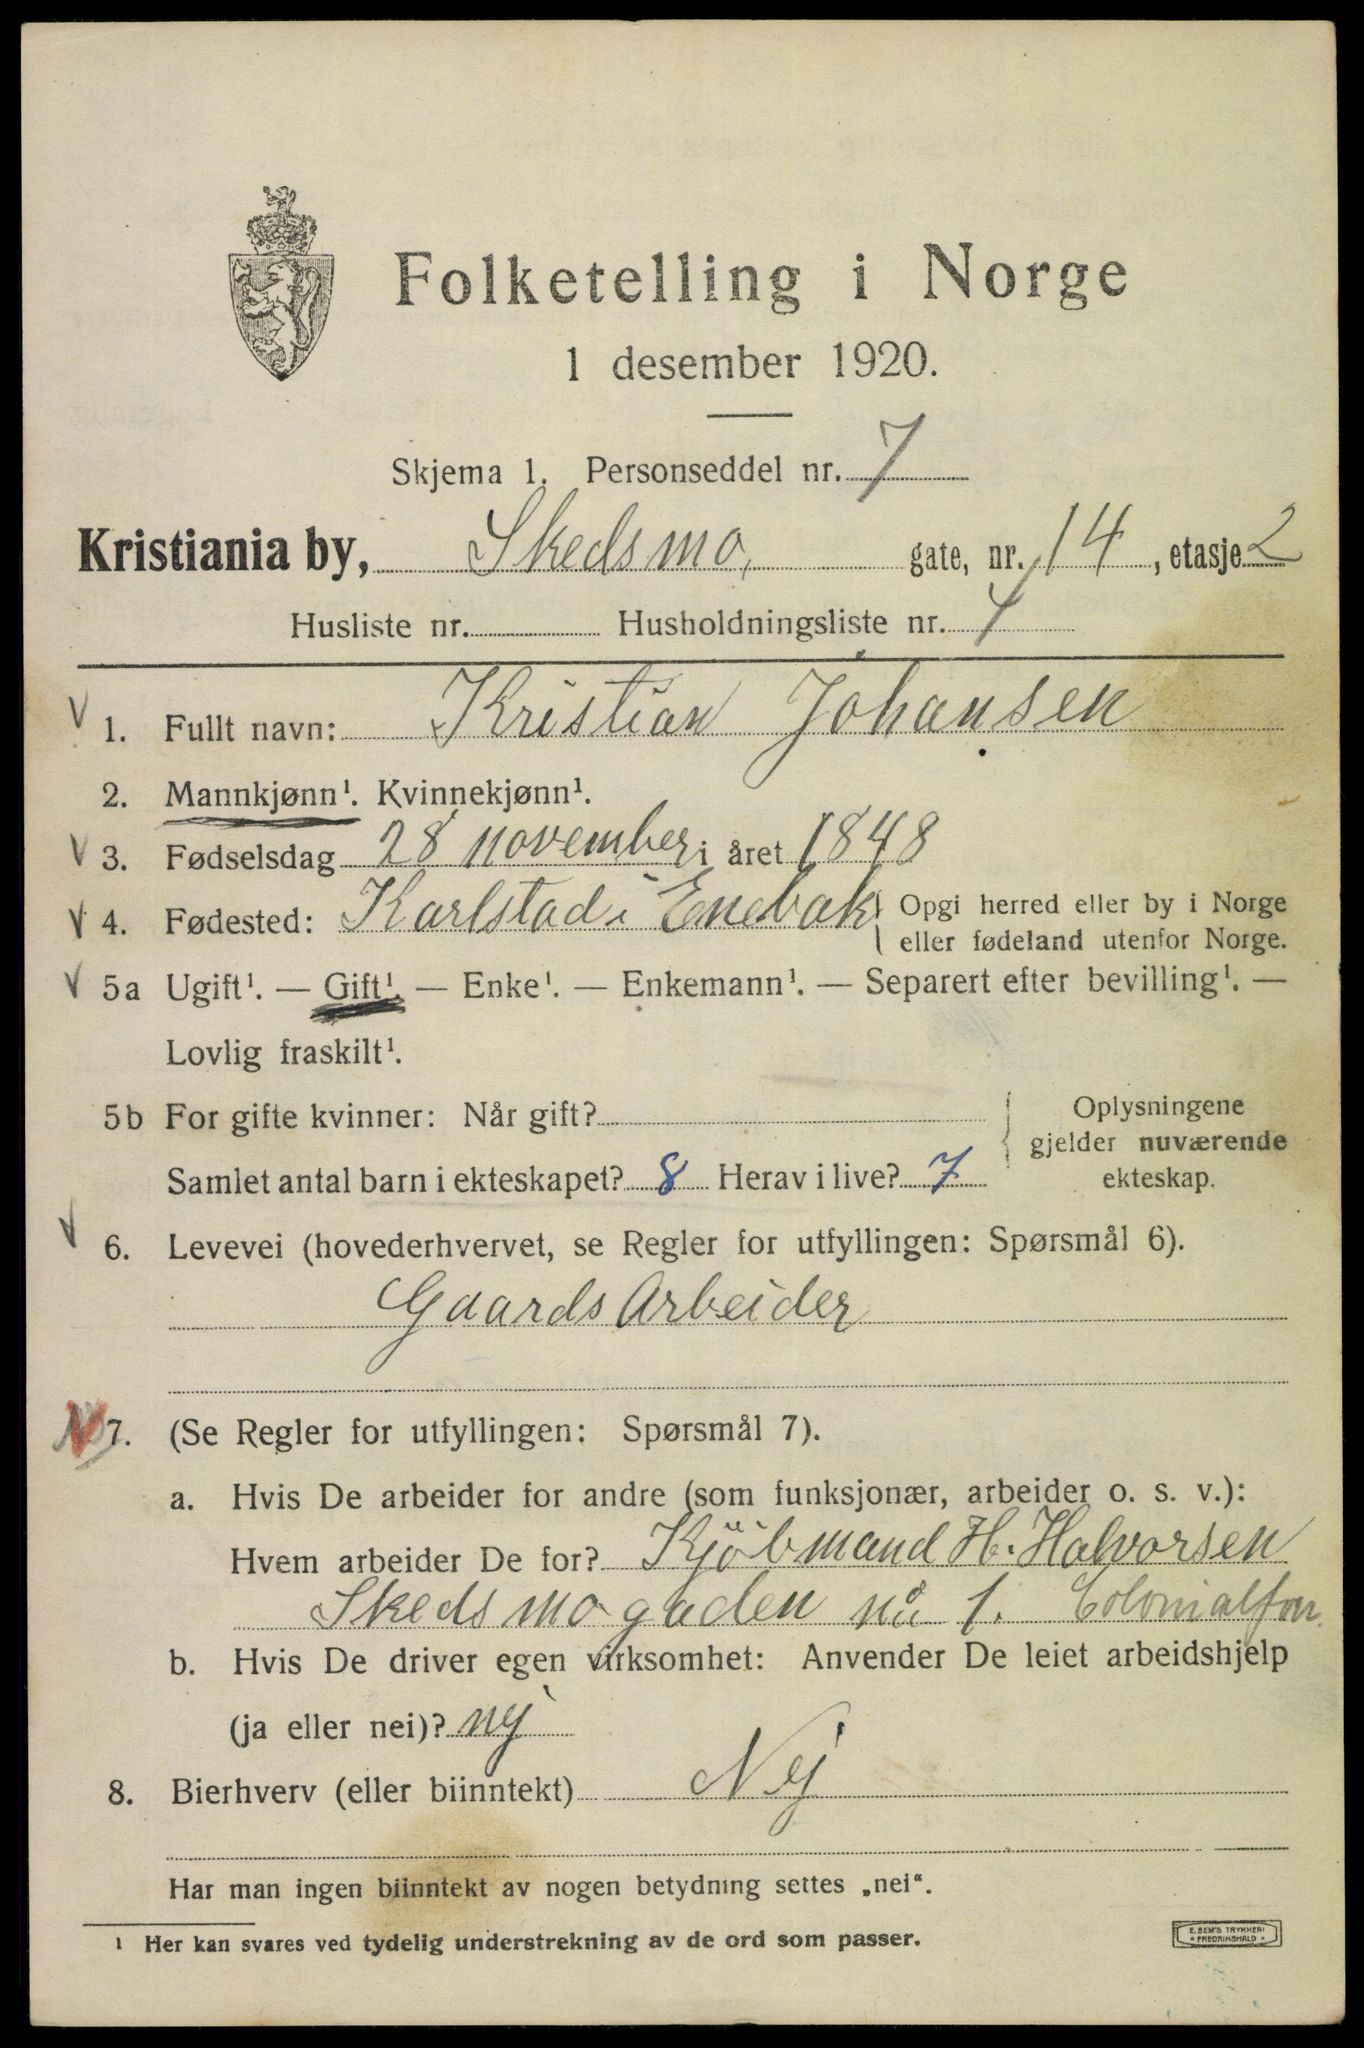 Folketelling i Norge
1 desember 1920.
Skjema 1. Personseddel nr. 7
Kristiania by, Skedsmo, gate, nr. 14, etasje 2
Husliste nr. Husholdningsliste nr.
V 1. Fullt navn: Kristian Johansen
2. Mannkjønn¹. Kvinnekjønn¹.
V 3. Fødselsdag 28 november i året 1848
V 4. Fødested: Karlstad i Enebak { Opgi herred eller by i Norge
eller fødeland utenfor Norge.
V 5a Ugift¹. — Gift¹. — Enke¹. — Enkemann¹. — Separert efter bevilling¹. —
Lovlig fraskilt¹.
5b For gifte kvinner: Når gift? { Oplysningene
gjelder nuværende
Samlet antal barn i ekteskapet? 8 Herav i live? 7 ekteskap.
V 6. Levevei (hovederhvervet, se Regler for utfyllingen: Spørsmål 6).
Gaards Arbeider
7. (Se Regler for utfyllingen: Spørsmål 7).
a. Hvis De arbeider for andre (som funksjonær, arbeider o. s. v.):
Hvem arbeider De for? Kjöbmand H. Halvorsen
Skedsmogaden no 1. Colonialforr.
b. Hvis De driver egen virksomhet: Anvender De leiet arbeidshjelp
(ja eller nei)? nej
8. Bierhverv (eller biinntekt) Nej
Har man ingen biinntekt av nogen betydning settes „nei“.
¹ Her kan svares ved tydelig understrekning av de ord som passer.
E. SEM'S TRYKKERI
* FREDRIKSHALD *